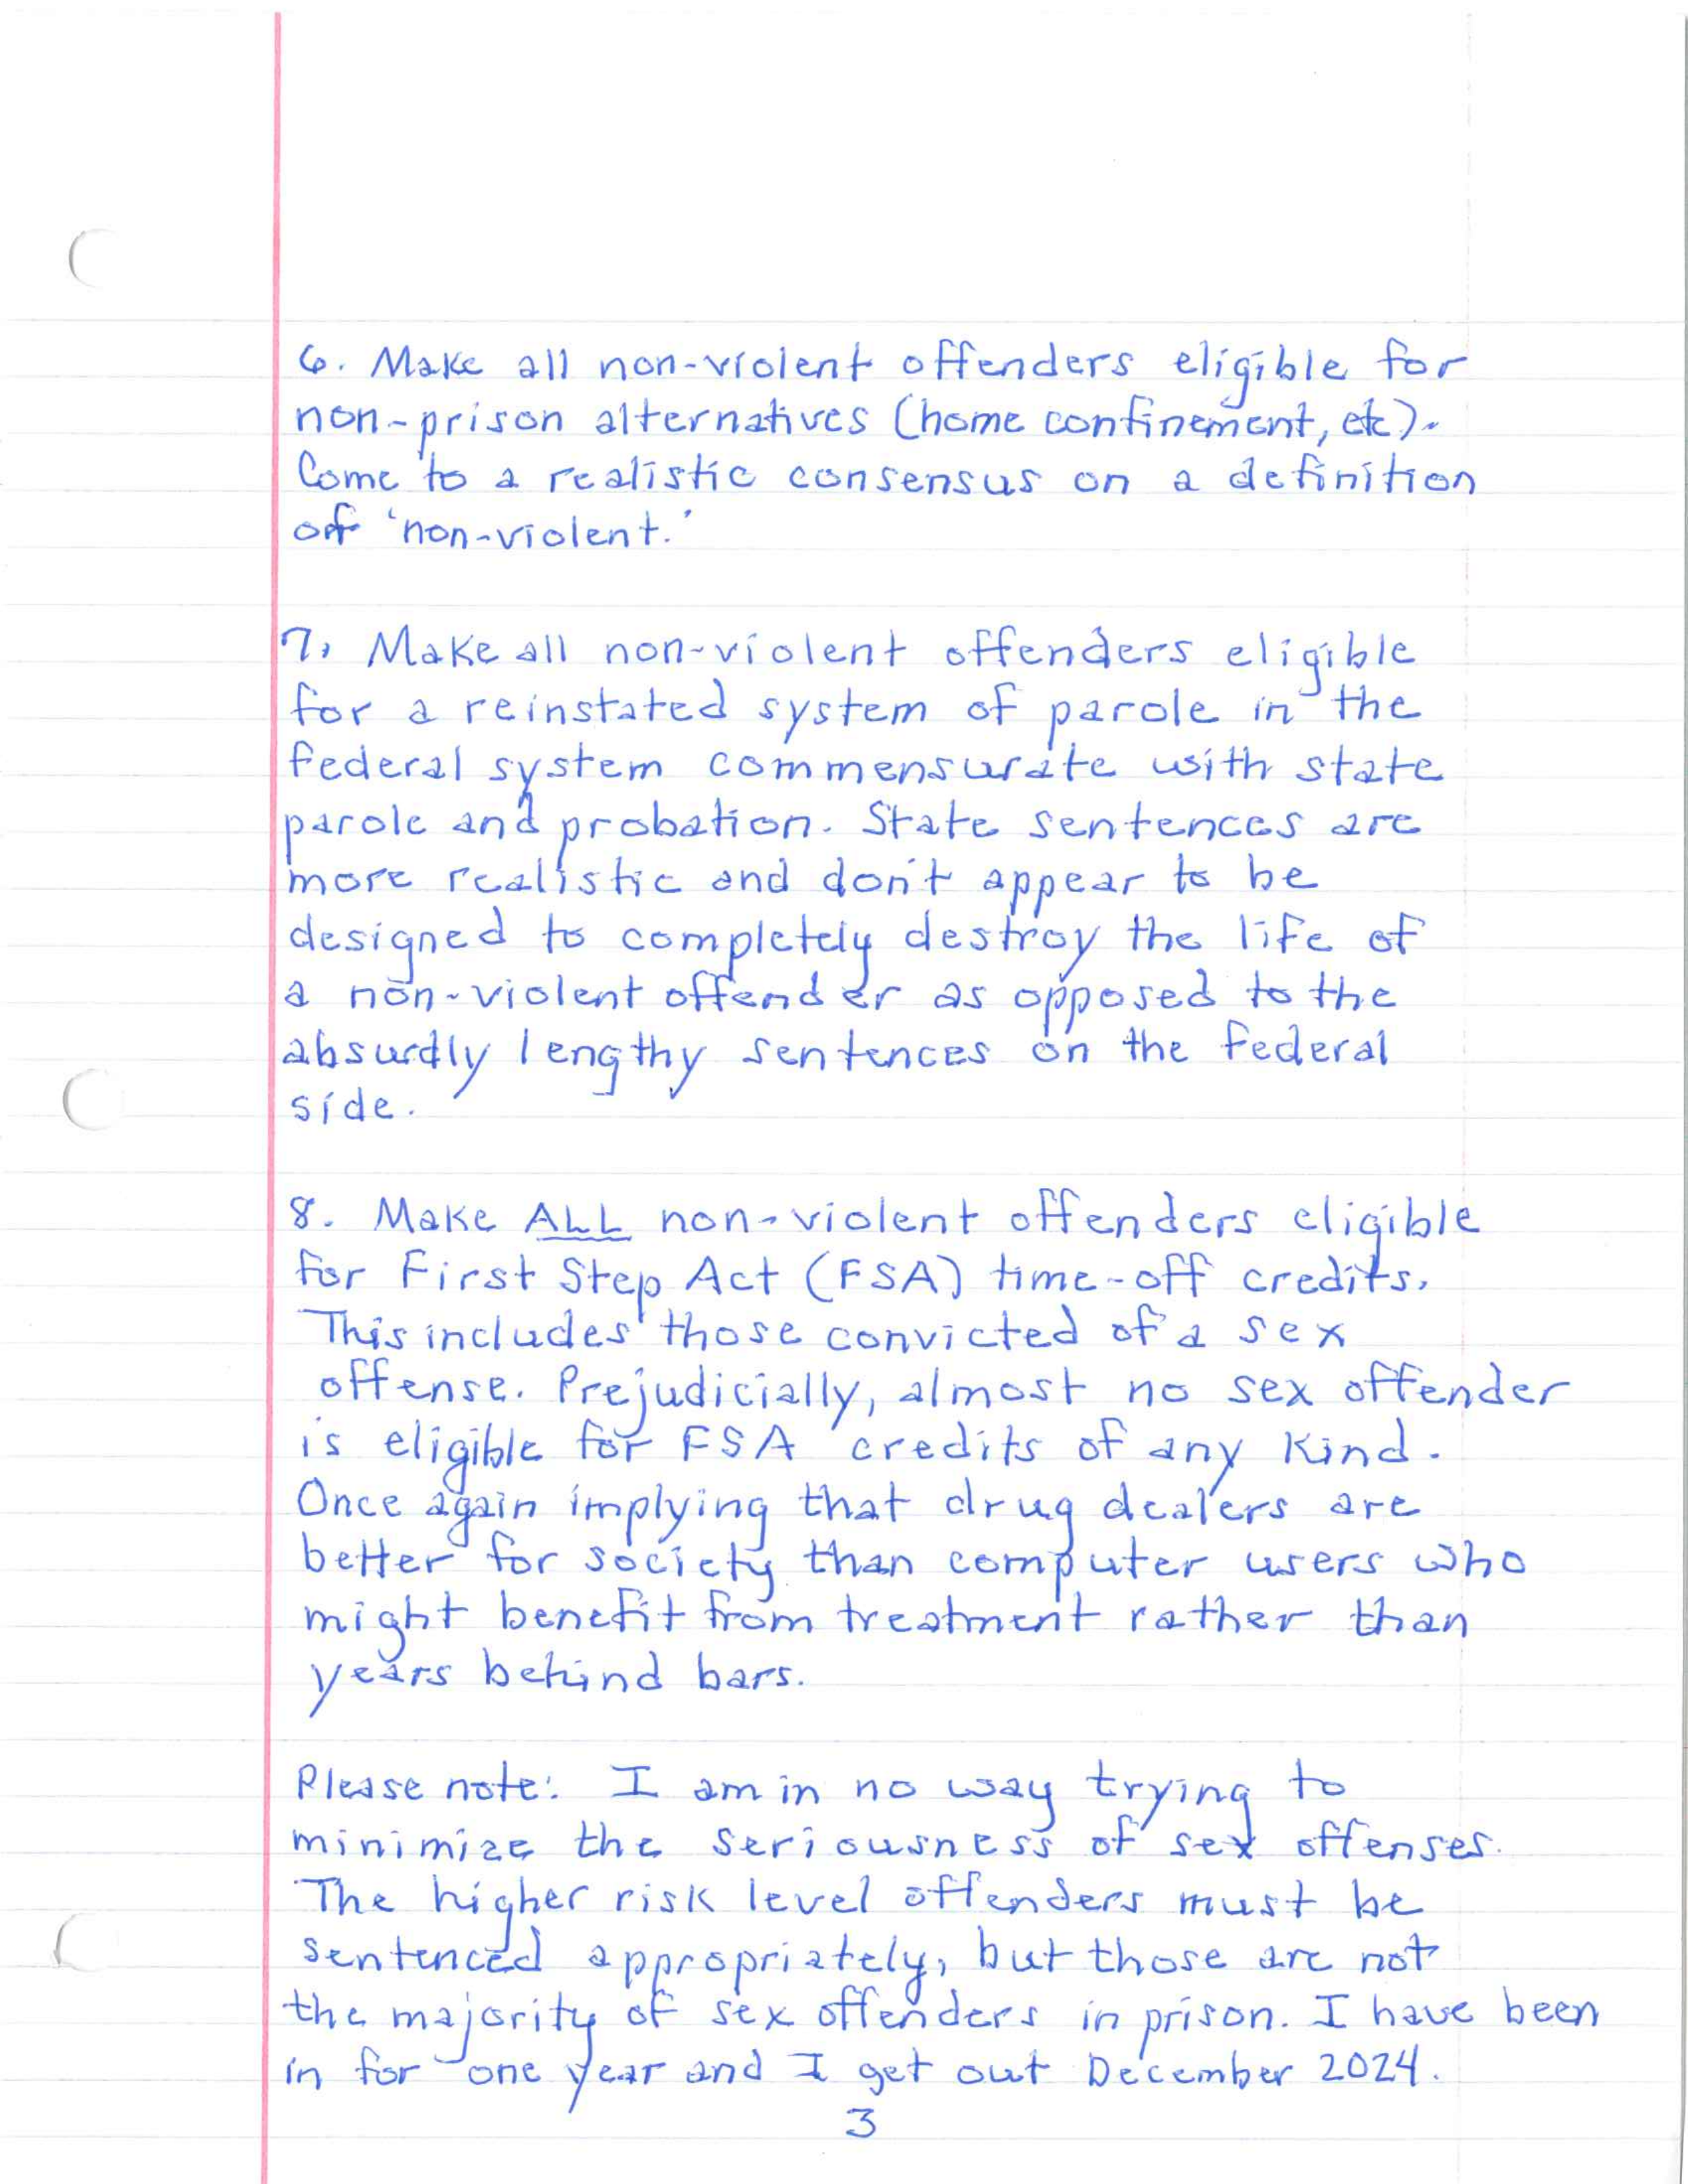 6. Make all non-violent offenders eligible for
non-prison alternatives (home confinement, etc).
Come to a realistic consensus on a definition
of 'non-violent.'
7. Make all non-violent offenders eligible
for a reinstated system of parole in the
federal system commensurate with state
parole and probation. State sentences are
more realistic and don't appear to be
designed to completely destroy the life of
a non-violent offender as opposed to the
absurdly lengthy sentences on the federal
side.
8. Make ALL non-violent offenders eligible
for First Step Act (FSA) time-off credits.
This includes those convicted of a sex
offense. Prejudicially, almost no sex offender
is eligible for FSA credits of any kind.
Once again implying that drug dealers are
better for society than computer users who
might benefit from treatment rather than
years behind bars.
Please note: I am in no way trying to
minimize the seriousness of sex offenses.
The higher risk level offenders must be
sentenced appropriately, but those are not
the majority of sex offenders in prison. I have been
in for one year and I get out December 2024.
3